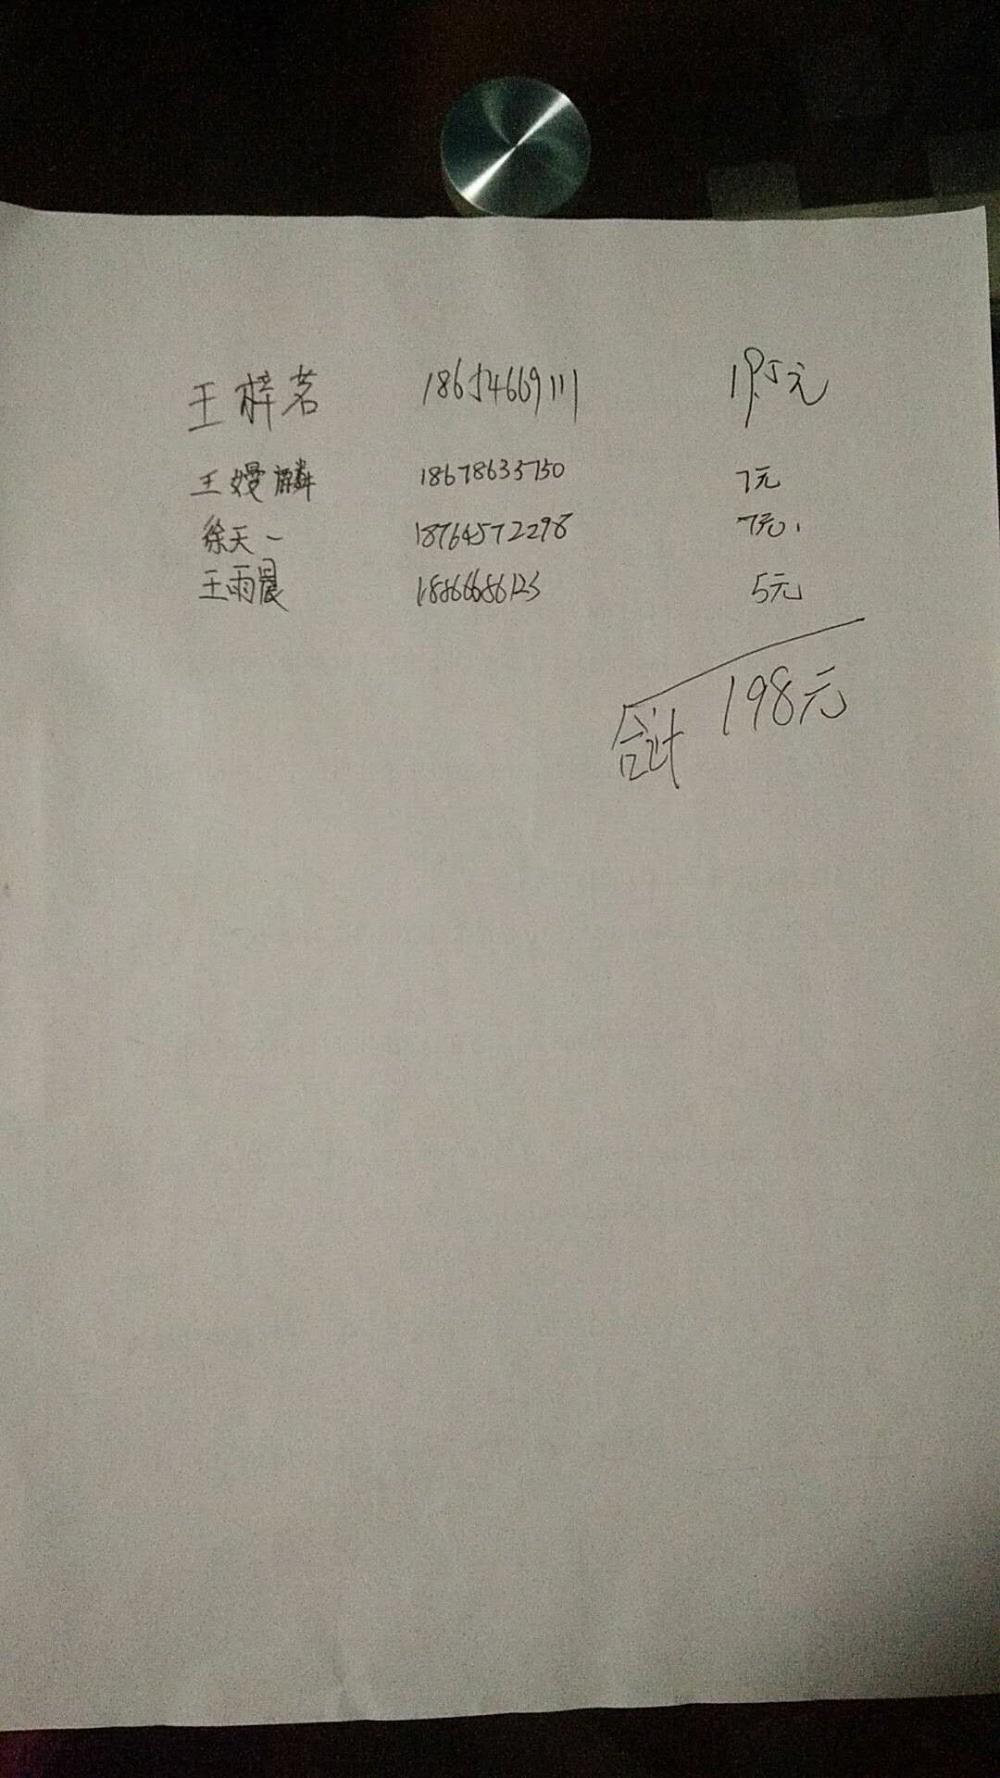 王梓茗 18654669111 19.5元
王嫚麟 18678633750 7元
徐天一 18764572298 7元
王雨晨 18866686123 5元
合计 198元